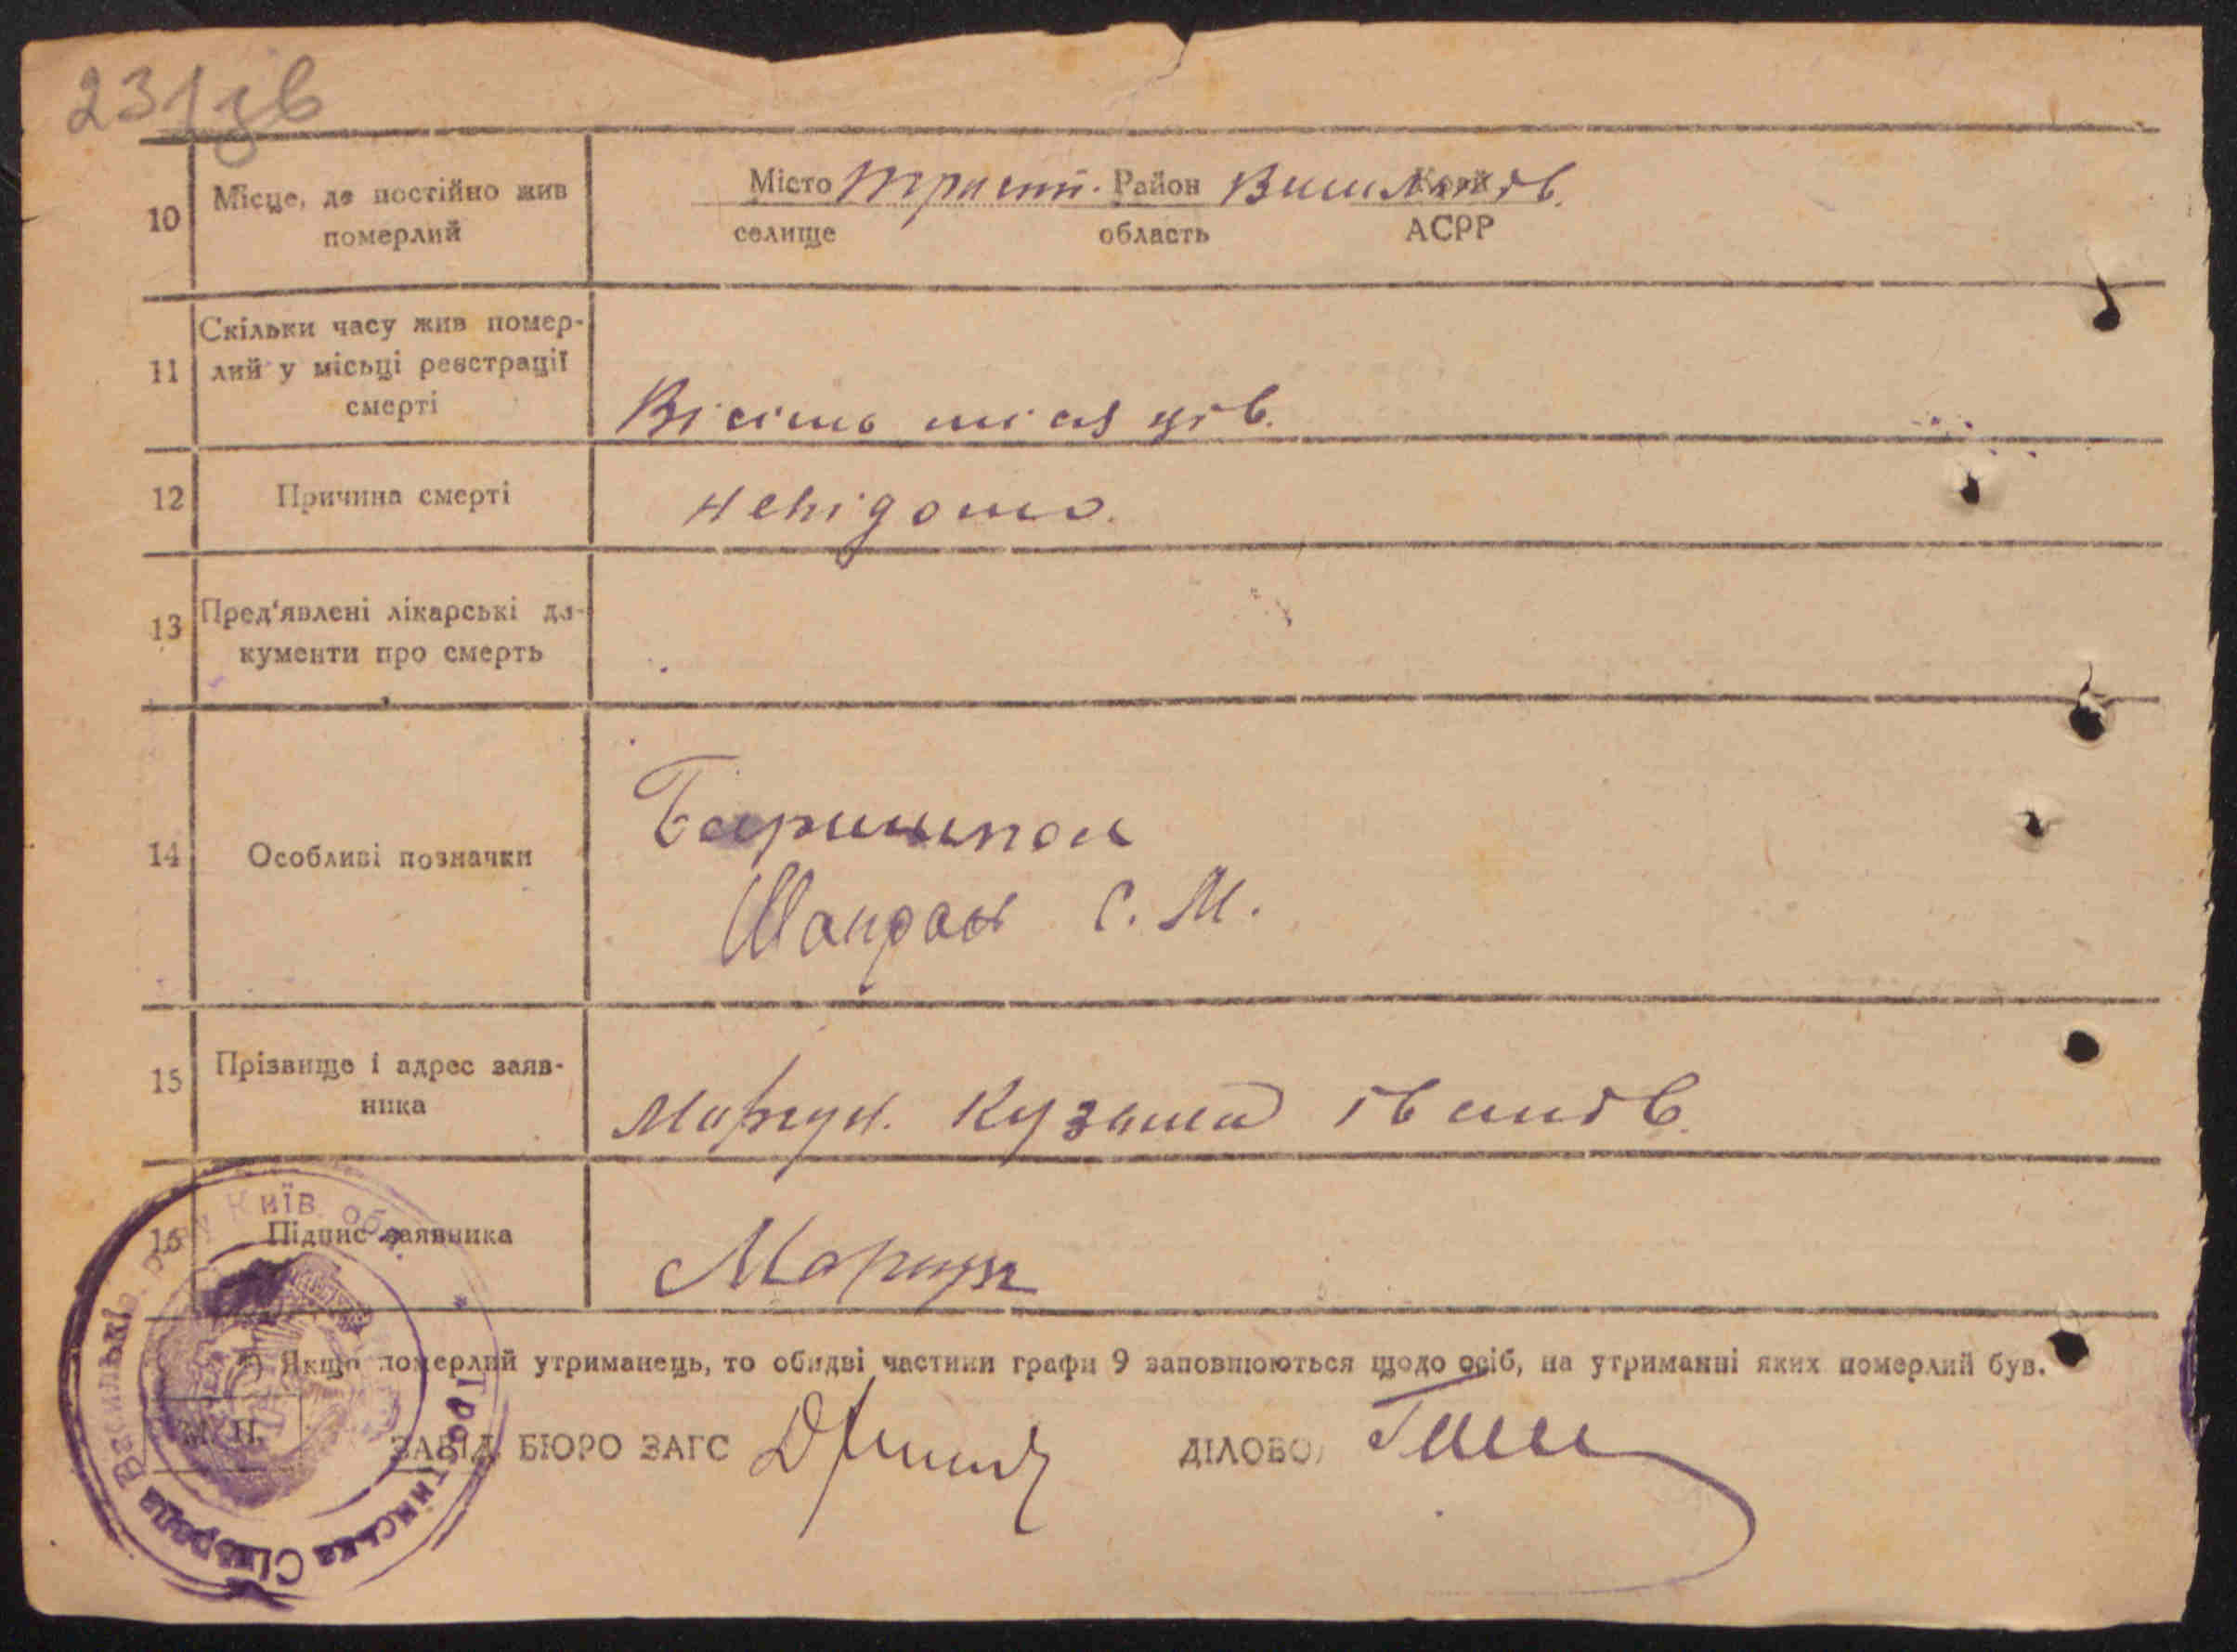 231зв
10
Місце, де постійно жив
померлий
Місто Трист. Район Край
селище область АСРР
11
Скільки часу жив помер-
лий у місьці реєстрації
смерті
Вісімь місяців.
12
Причина смерті
невідомо.
13
Пред'явлені лікарські до-
кументи про смерть
14
Особливі позначки
С. М.
15
Прізвище і адрес заяв-
ника
Кузьма Іванів.
16
Підпис заявника
*) Якщо померлий утриманець, то обидві частини графи 9 заповнюються щодо осіб, на утриманні яких померлий був.
М. П.
ЗАВІД. БЮРО ЗАГС ДІЛОВОД
Тростинська Сільрада Васильків. р-ну Київ. обл. *